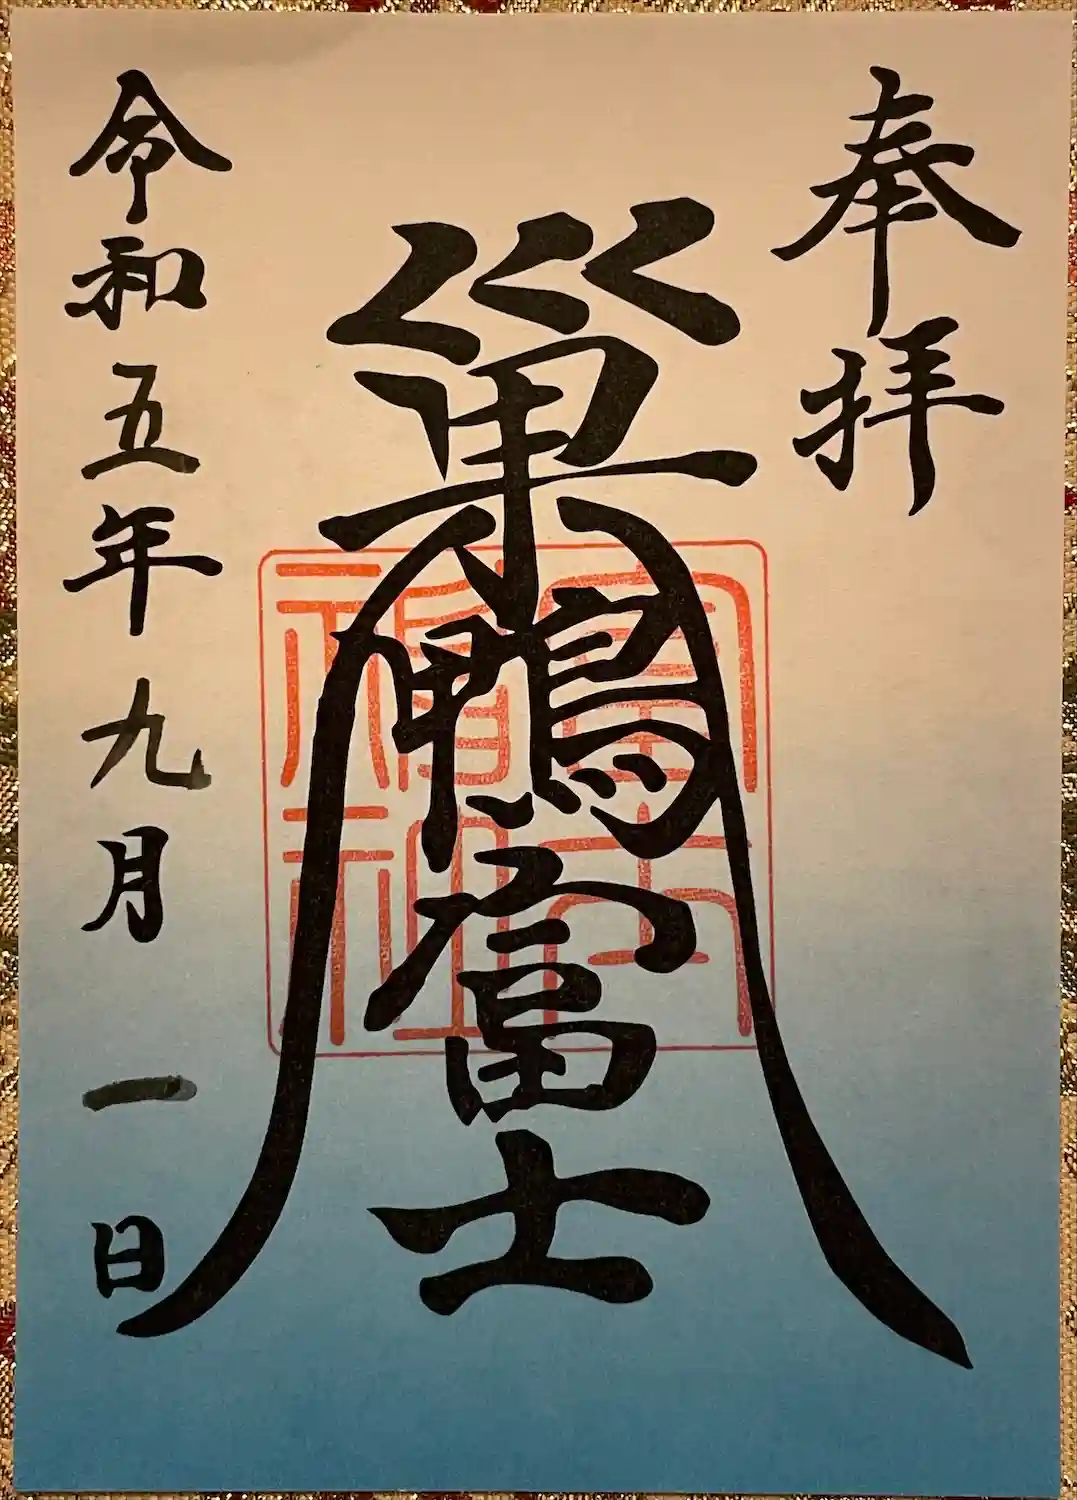 奉拝
巣鴨富士
富士
福神
令和五年九月一日